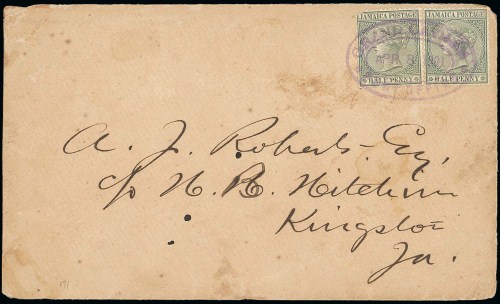 JAMAICA POSTAGE JAMAICA POSTAGE
GRAND CAYMAN
HALF PENNY HALF PENNY
A. J. Roberts Esq,
c/o H. B. Hitchins
Kingston
Ja.